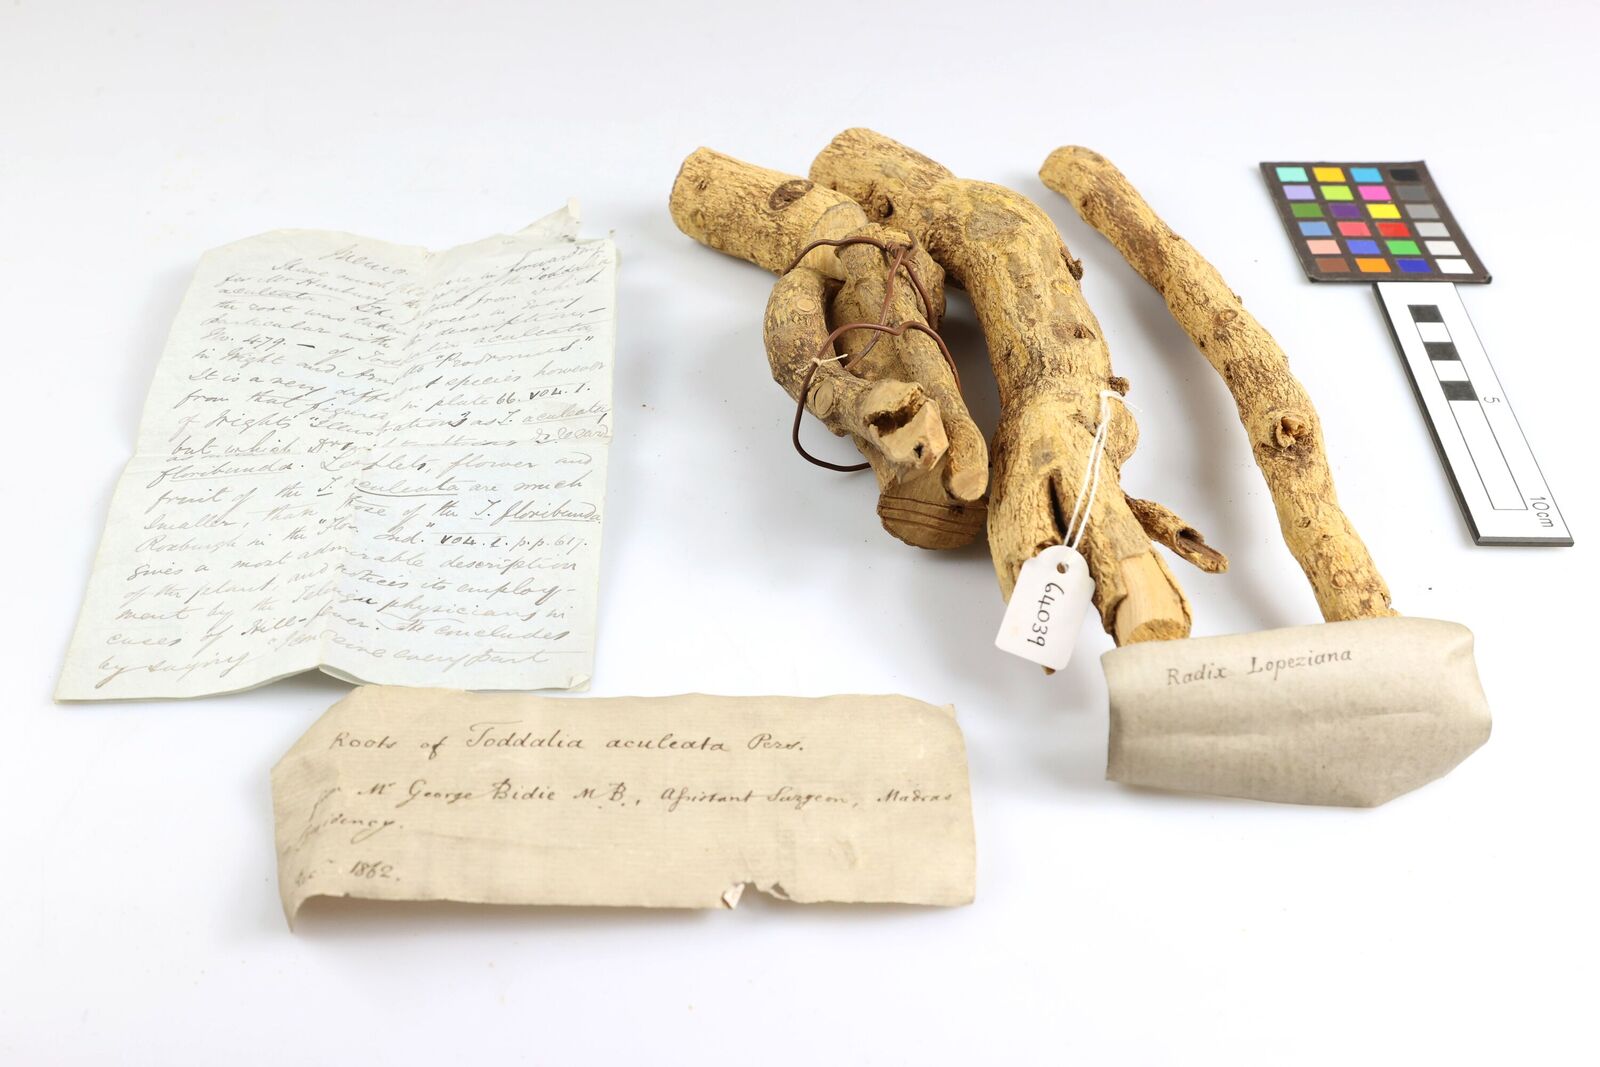 Memo
I have much pleasure in forwarding
for Mr Hanbury the root of the Toddalia
aculeata. The plant from which
the root was taken agrees in every
particular with the description,
No. 479. — of Toddalia aculeata
in Wight and Arnotts "Prodromus."
It is a very different species however
from that figured in plate 66. vol. 1.
of Wights "Illustrations" as T. aculeata,
but which Dr
floribunda. Leaflets, flower and
fruit of the T. aculeata are much
smaller, than those of the T. floribunda.
Roxburgh in the "Flor. Ind." vol. 1. p.p. 617.
gives a most admirable description
of the plant, and notices its employ-
ment by the Telinga physicians in
cases of Hill-fever. He concludes
by saying "I
every part
Roots of Toddalia aculeata Pers.
from Mr George Bidie M.B., Assistant Surgeon, Madras
Presidency.
1862.
64039
Radix Lopeziana
5
10cm